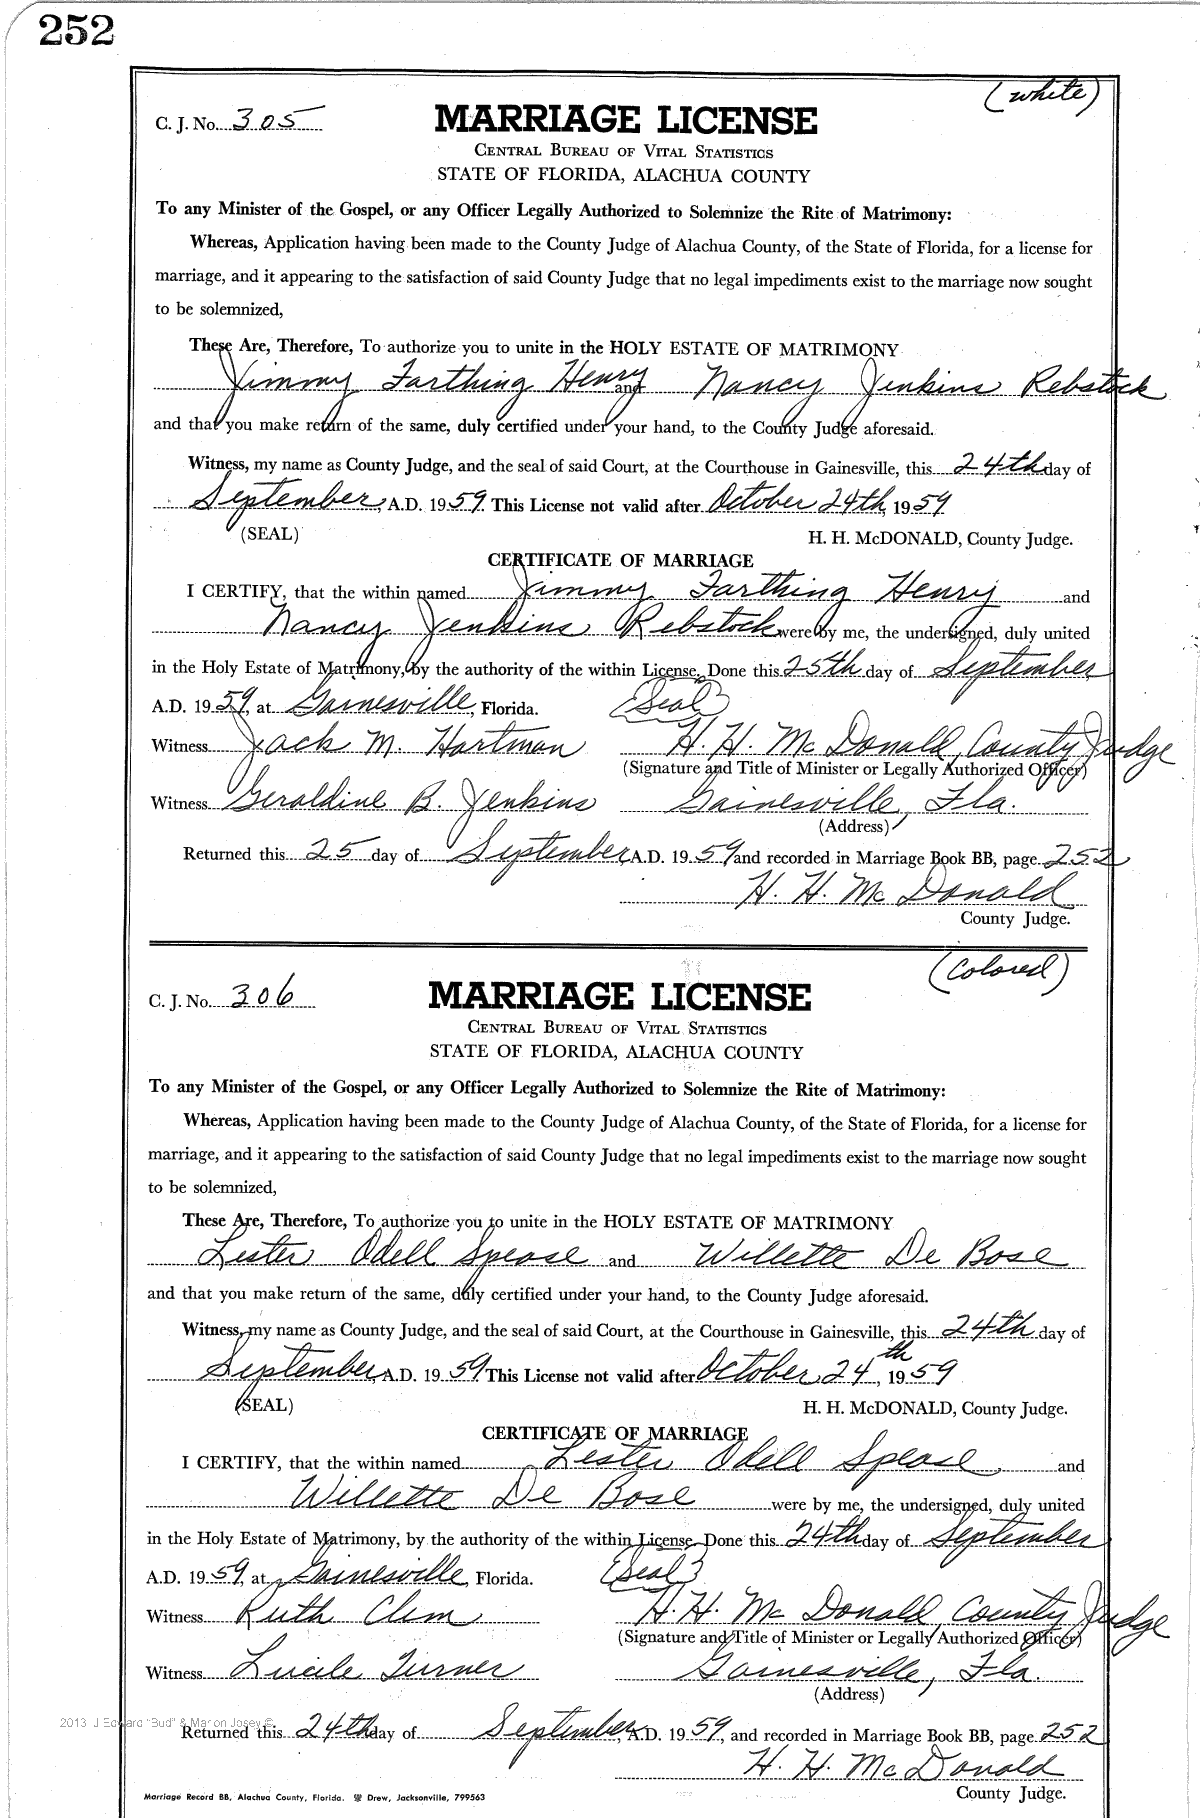 252
(white)
C. J. No. 305
MARRIAGE LICENSE
CENTRAL BUREAU OF VITAL STATISTICS
STATE OF FLORIDA, ALACHUA COUNTY
To any Minister of the Gospel, or any Officer Legally Authorized to Solemnize the Rite of Matrimony:
Whereas, Application having been made to the County Judge of Alachua County, of the State of Florida, for a license for
marriage, and it appearing to the satisfaction of said County Judge that no legal impediments exist to the marriage now sought
to be solemnized,
These Are, Therefore, To authorize you to unite in the HOLY ESTATE OF MATRIMONY
Jimmy Farthing Henry and Nancy Jenkins Rebstock
and that you make return of the same, duly certified under your hand, to the County Judge aforesaid.
Witness, my name as County Judge, and the seal of said Court, at the Courthouse in Gainesville, this 24th day of
September, A.D. 1959. This License not valid after October 24th, 1959
(SEAL) H. H. McDONALD, County Judge.
CERTIFICATE OF MARRIAGE
I CERTIFY, that the within named Jimmy Farthing Henry and
Nancy Jenkins Rebstock were by me, the undersigned, duly united
in the Holy Estate of Matrimony, by the authority of the within License. Done this 25th day of September
A.D. 1959, at Gainesville, Florida. (Seal)
Witness Jack M. Hartman H. H. McDonald, County Judge
(Signature and Title of Minister or Legally Authorized Officer)
Witness Geraldine B. Jenkins Gainesville, Fla.
(Address)
Returned this 25 day of September A.D. 1959 and recorded in Marriage Book BB, page 252
H. H. McDonald
County Judge.
(Colored)
C. J. No. 306
MARRIAGE LICENSE
CENTRAL BUREAU OF VITAL STATISTICS
STATE OF FLORIDA, ALACHUA COUNTY
To any Minister of the Gospel, or any Officer Legally Authorized to Solemnize the Rite of Matrimony:
Whereas, Application having been made to the County Judge of Alachua County, of the State of Florida, for a license for
marriage, and it appearing to the satisfaction of said County Judge that no legal impediments exist to the marriage now sought
to be solemnized,
These Are, Therefore, To authorize you to unite in the HOLY ESTATE OF MATRIMONY
Lester Odell Spease and Willette De Bose
and that you make return of the same, duly certified under your hand, to the County Judge aforesaid.
Witness, my name as County Judge, and the seal of said Court, at the Courthouse in Gainesville, this 24th day of
September, A.D. 1959 This License not valid after October 24th, 1959
(SEAL) H. H. McDONALD, County Judge.
CERTIFICATE OF MARRIAGE
I CERTIFY, that the within named Lester Odell Spease and
Willette De Bose were by me, the undersigned, duly united
in the Holy Estate of Matrimony, by the authority of the within License. Done this 24th day of September
A.D. 1959, at Gainesville, Florida. (Seal)
Witness Ruth Clem H. H. McDonald, County Judge
(Signature and Title of Minister or Legally Authorized Officer)
Witness Lucile Turner Gainesville, Fla.
(Address)
2013 J Edward "Bud" & Marion Josey ©
Returned this 24th day of September, A.D. 1959, and recorded in Marriage Book BB, page 252
H. H. McDonald
County Judge.
Marriage Record BB, Alachua County, Florida. Drew, Jacksonville, 799563